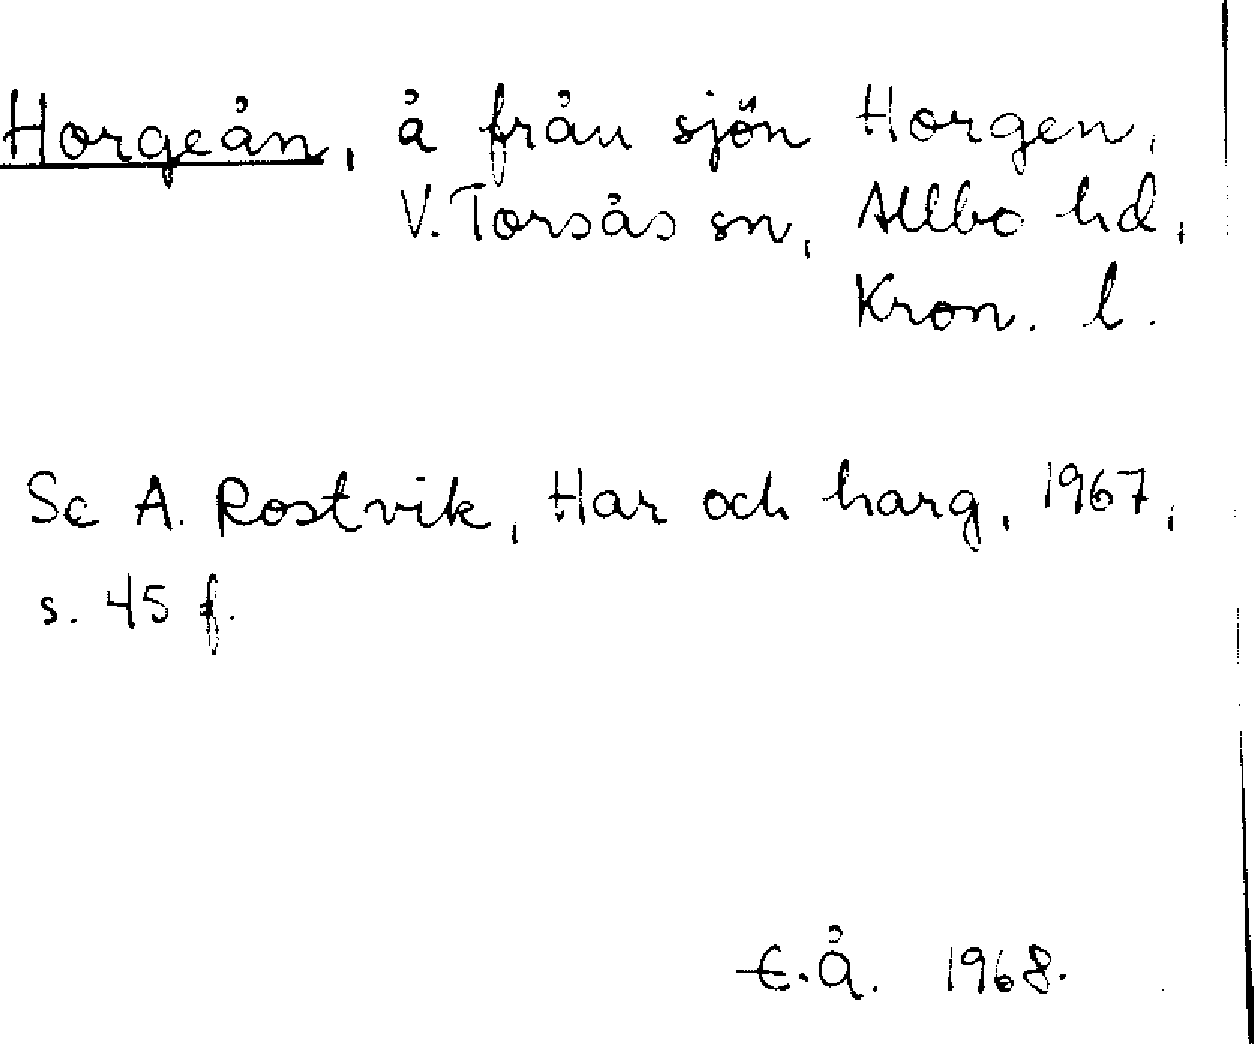 Horgeån, å från sjön Horgen,
V. Torsås sn, Allbo hd,
Kron. l.
Se A. Rostvik, Har och harg, 1967,
s. 45 f.
E.Å. 1968.